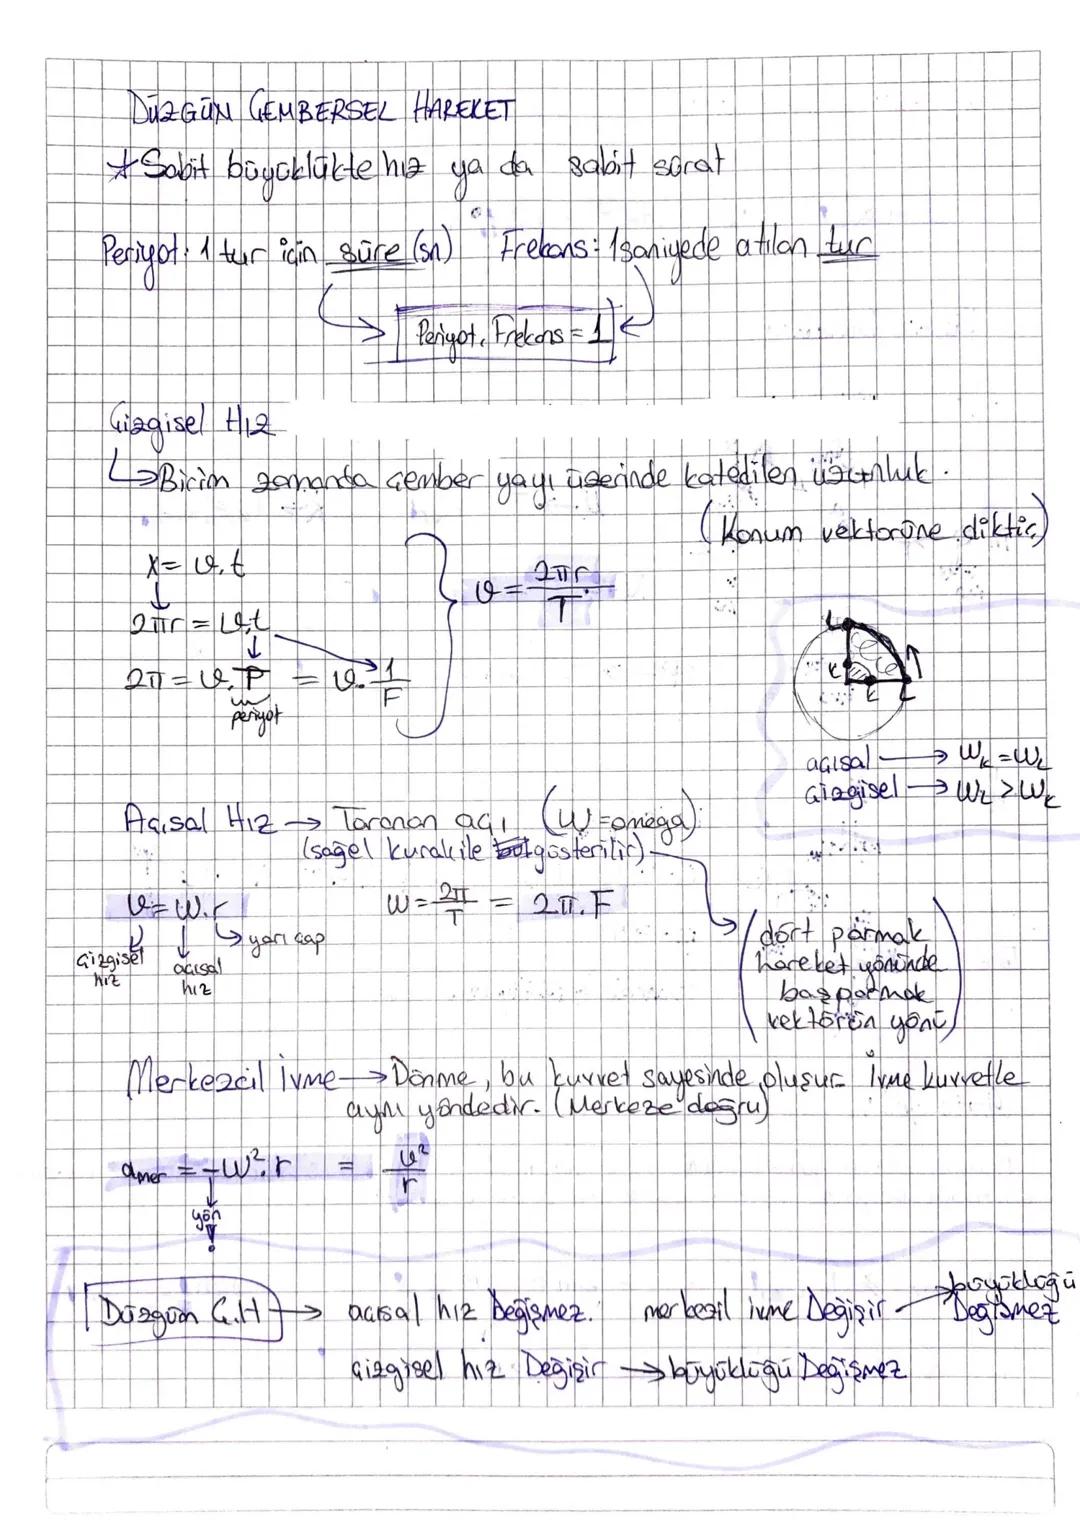 DÜZGÜN ÇEMBERSEL HAREKET
* Sabit büyüklükte hız ya da sabit sürat
Periyot: 1 tur için süre (sn) Frekans: 1 saniyede atılan tur
Periyot. Frekans = 1
Çizgisel Hız
↳ Birim zamanda çember yayı üzerinde katedilen uzunluk.
(Konum vektörüne diktir)
x = v.t
2πr = v.t
v = 2πr / T
2π = v.P = v. 1/F
periyot
L
K
K L
açısal → Wk = WL
çizgisel → WL > Wk
Açısal Hız → Taranan açı (W = omega)
(sağel kuralı ile gösterilir)
v = W.r
W = 2π/T = 2.π.F
çizgisel hız
açısal hız
yarı çap
(dört parmak
hareket yönünde
başparmak
vektörün yönü)
Merkezcil İvme → Dönme, bu kuvvet sayesinde oluşur. İvme kuvvetle
aynı yöndedir. (Merkeze doğru)
amer = -W².r = v²/r
yön
!
Düzgün Ç.H → açısal hız Değişmez. merkezil ivme Değişir → büyüklüğü Değişmez
çizgisel hız Değişir → büyüklüğü Değişmez